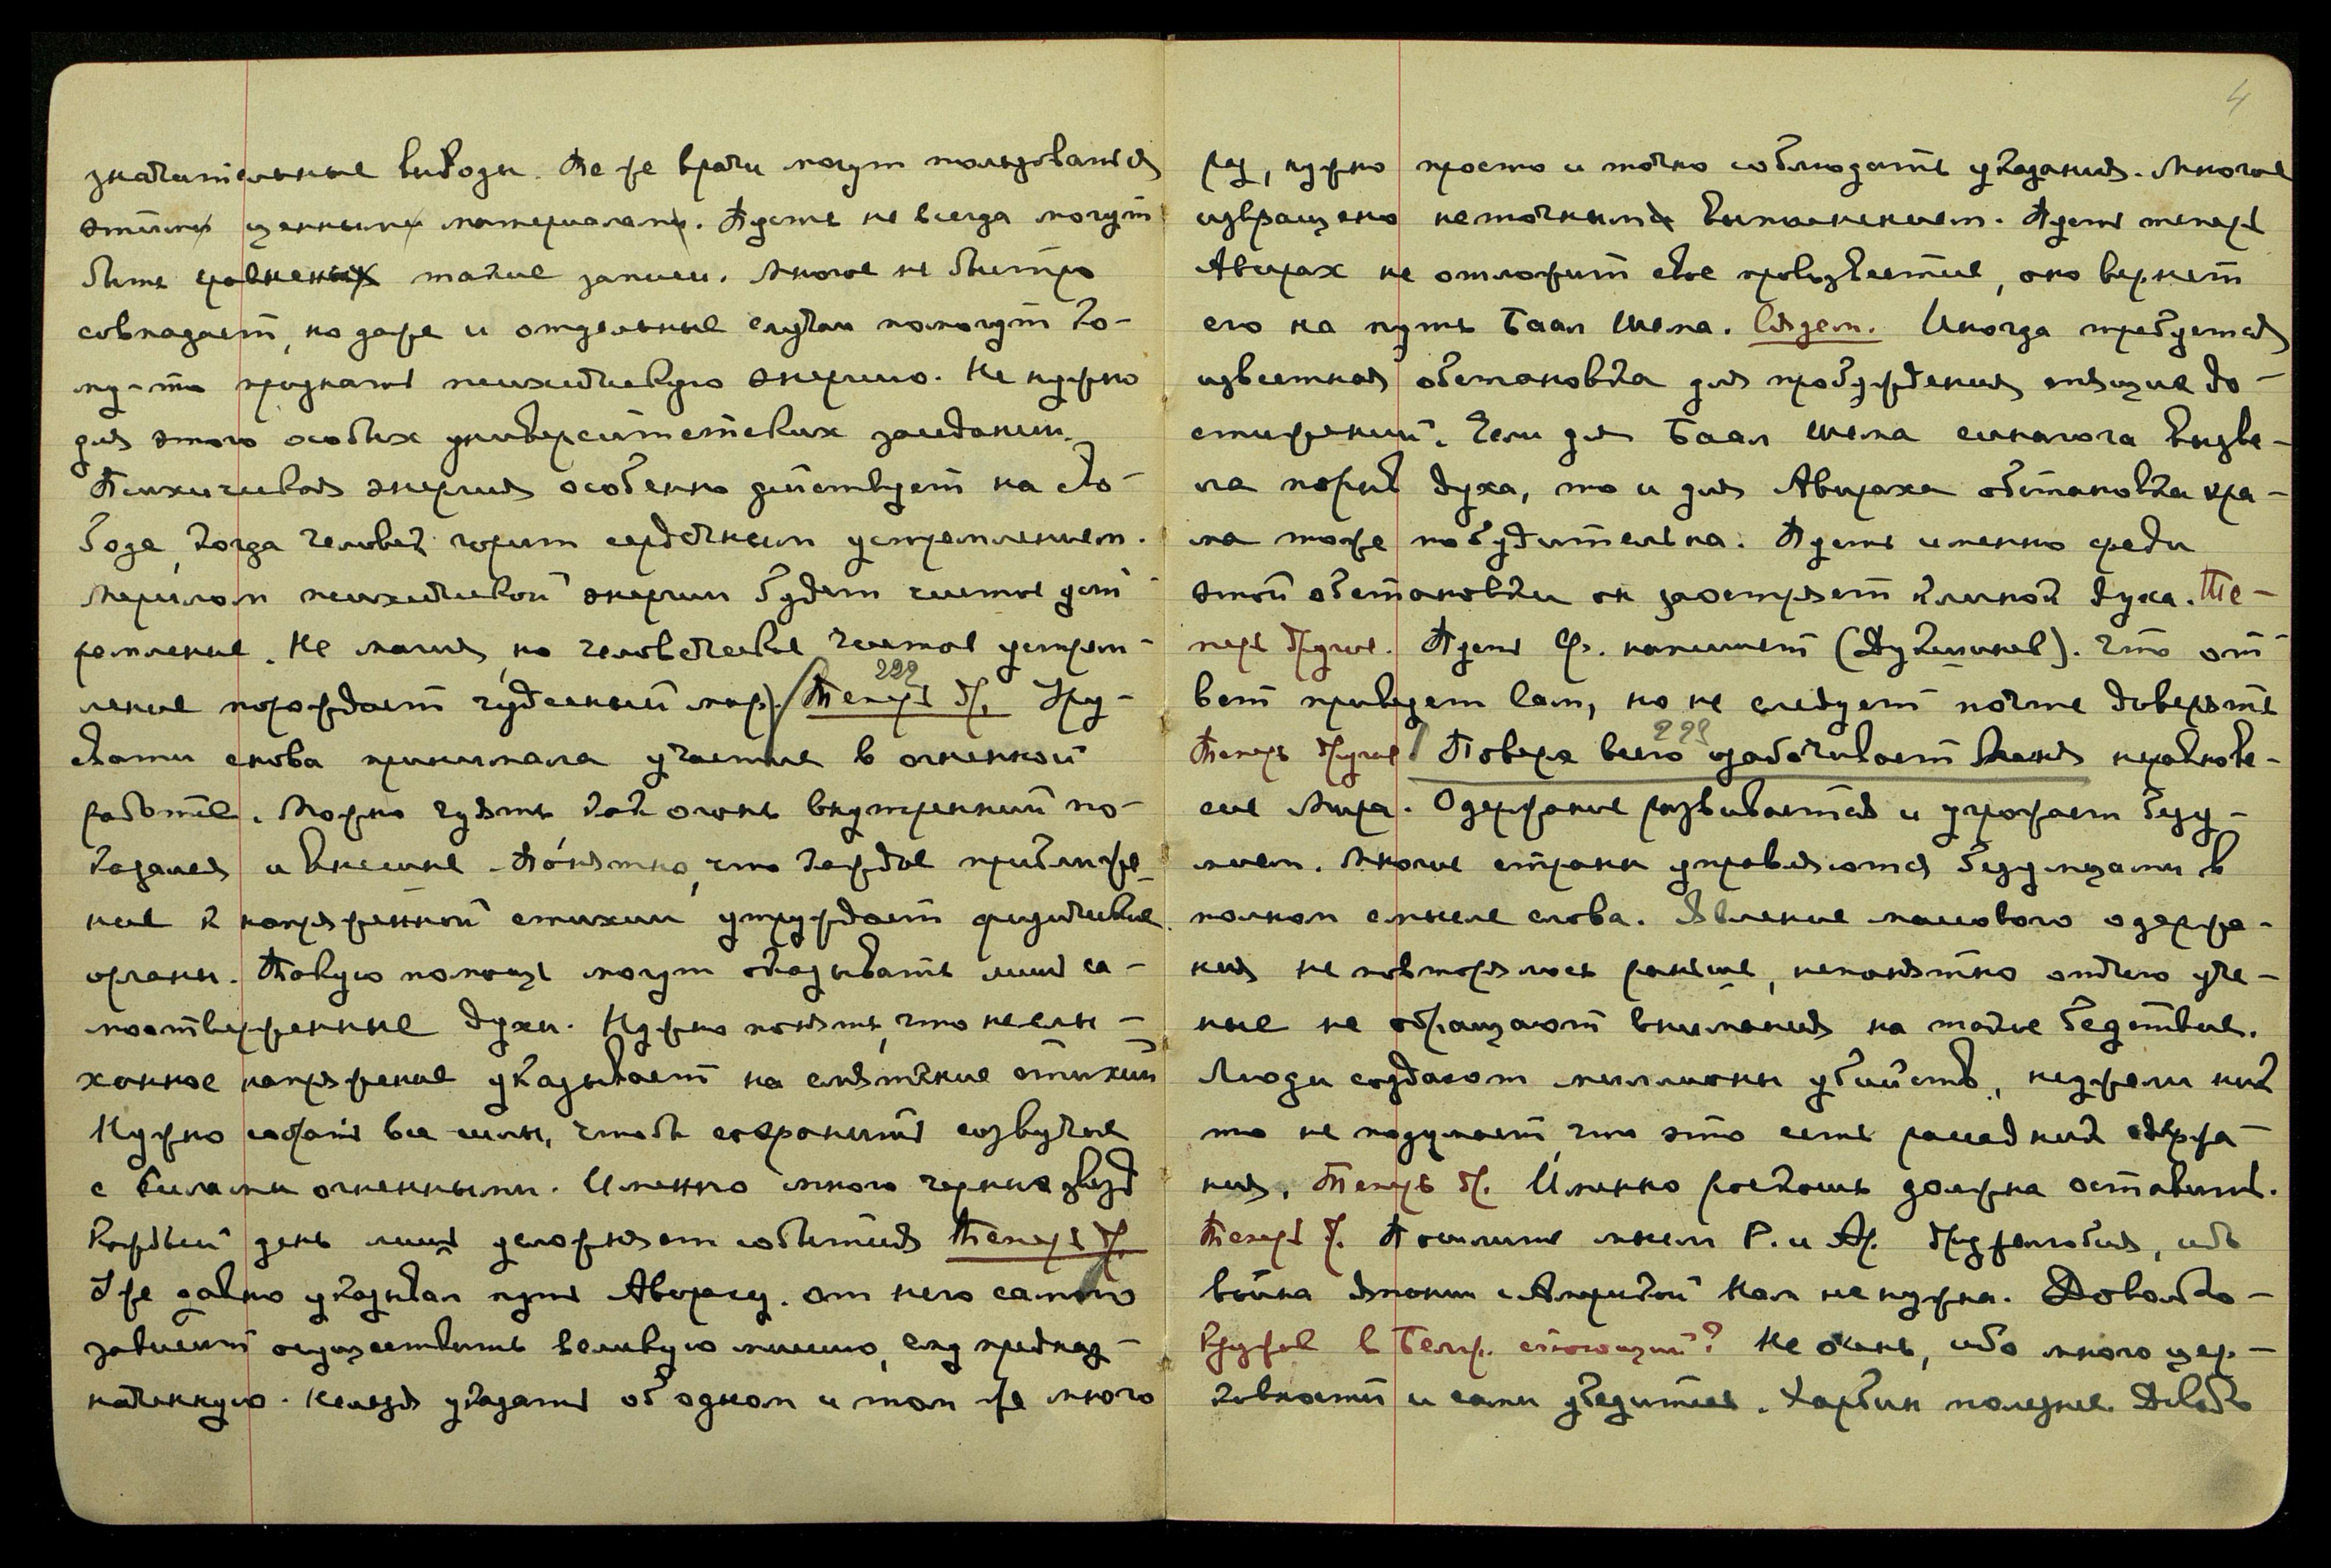 значительные выводы. Те же врачи могут пользоваться
этими ценными материалами. Пусть не всегда могут
быть сравнены такие записи. Многое не быстро
совпадает, но даже и отдельные случаи помогут ко-
му-то признать психическую энергию. Не нужно
для этого особых университетских заседаний.
Психическая энергия особенно действует на сво-
боде, когда человек горит сердечным устремлением.
Мерилом психической энергии будет чистое уст-
ремление. Не магия, но человеческое чистое устрем-
ление порождает чудесный мир. 222 Теперь др. Уру-
свати снова принимала участие в огненной
работе. Можно чуять как огонь внутренний по-
казался и внешне. Понятно, что каждое приближе-
ние к напряженной стихии утруждает физические
органы. Такую помощь могут оказывать лишь са-
моотверженные духи. Нужно понять, что неслы-
ханное напряжение указывает на смятение стихий
Нужно собрать все силы, чтобы сохранить созвучие
с силами огненными. Именно много черных звезд
Каждый день лишь усложняет события Теперь др.
Уже давно указывал путь Авираху. От него самого
зависит осуществить великую миссию, ему предназ-
наченную. Нельзя указать об одном и том же много
4
раз, нужно просто и точно соблюдать указания. Многое
извращено неточным выполнением. Пусть теперь
Авирах не отложит свое провозвестие, оно вернет
его на путь Баал Шема. Сядем. Иногда требуется
известная обстановка для пробуждения спящих до-
стижений. Если для Баал Шема синагога вызве-
ла порыв духа, то и для Авираха обстановка хра-
ма тоже побудительна. Пусть именно среди
этой обстановки он заострит клинок духа. Те-
перь другое. Пусть Ф. напишет (Лукину). Что от-
вет приведет Сам, но не следует почте доверять
Теперь другое 223 Поверх всего озабочивает Меня неравнове-
сие Мира. Одержание развивается и угрожает безу-
мием. Многие страны управляются безумцами в
полном смысле слова. Явление массового одержа-
ния не повторялось раньше, непонятно отчего уче-
ные не обращают внимания на такие бедствия.
Люди создают миллионы убийств, неужели ник
то не подумает что это есть рассадник одержа-
ния. Теперь др. Именно роскошь должна оставить.
Теперь др. Пошлите мысли Р. и Ам. дружелюбия, ибо
война Японии с Америкой Нам не нужна. Доволь
кружок в Белгр. стоющий? Не очень, ибо много цер-
ковности и сами убедитесь. Харбин полезнее.